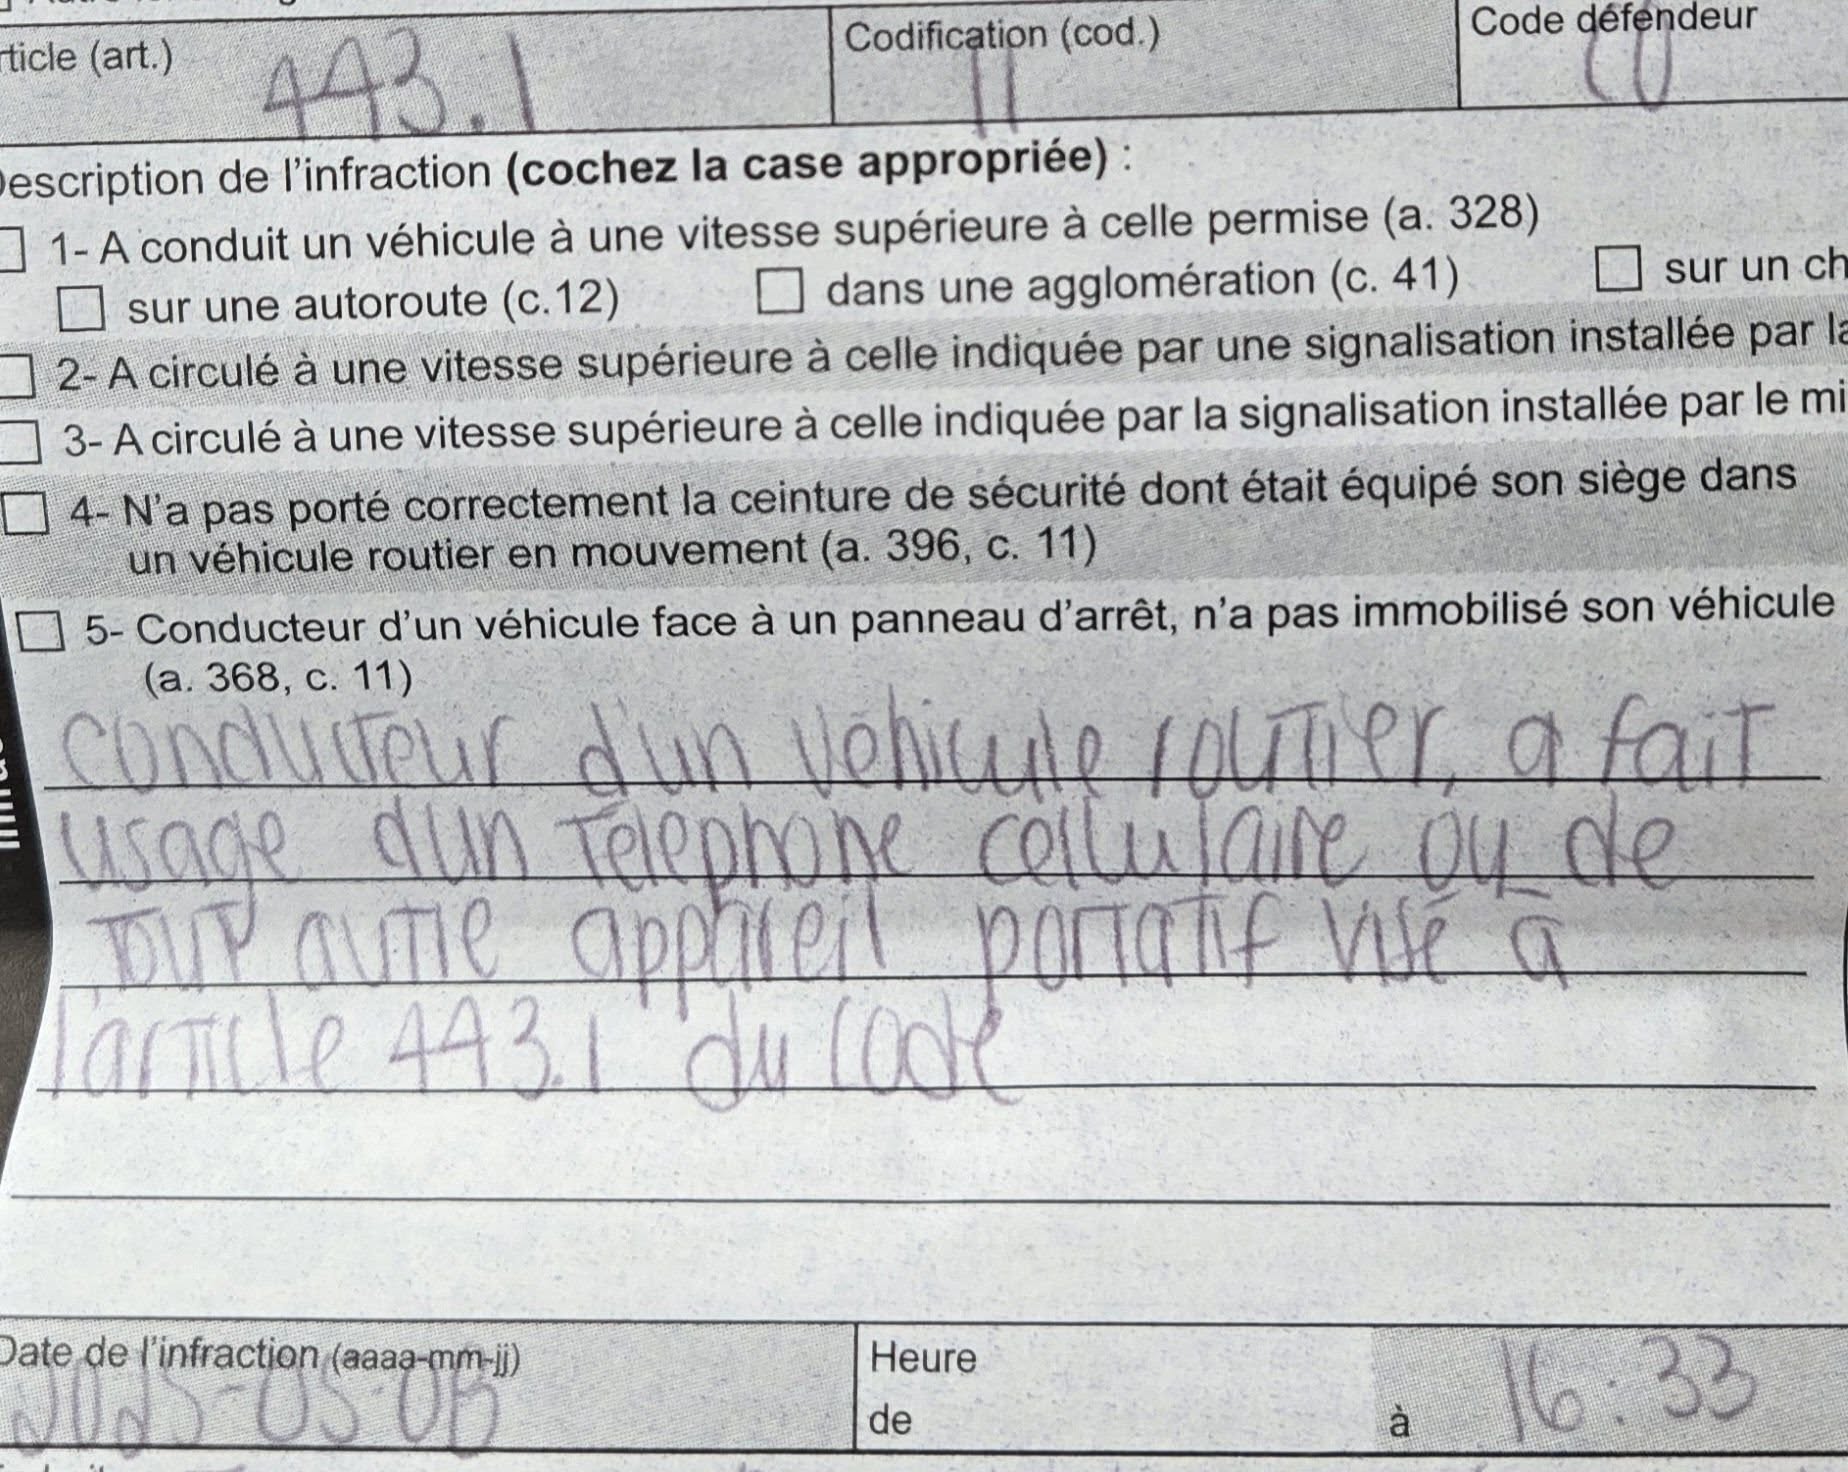 rticle (art.) 443.1 Codification (cod.) 11 Code défendeur
Description de l'infraction (cochez la case appropriée) :
1- A conduit un véhicule à une vitesse supérieure à celle permise (a. 328)
sur une autoroute (c.12) dans une agglomération (c. 41) sur un ch
2- A circulé à une vitesse supérieure à celle indiquée par une signalisation installée par la
3- A circulé à une vitesse supérieure à celle indiquée par la signalisation installée par le mi
4- N'a pas porté correctement la ceinture de sécurité dont était équipé son siège dans
un véhicule routier en mouvement (a. 396, c. 11)
5- Conducteur d'un véhicule face à un panneau d'arrêt, n'a pas immobilisé son véhicule
(a. 368, c. 11)
conducteur d'un véhicule routier, a fait
usage d'un téléphone cellulaire ou de
tout autre appareil portatif visé à
l'article 443.1 du code
Date de l'infraction (aaaa-mm-jj) Heure
de à 16:33